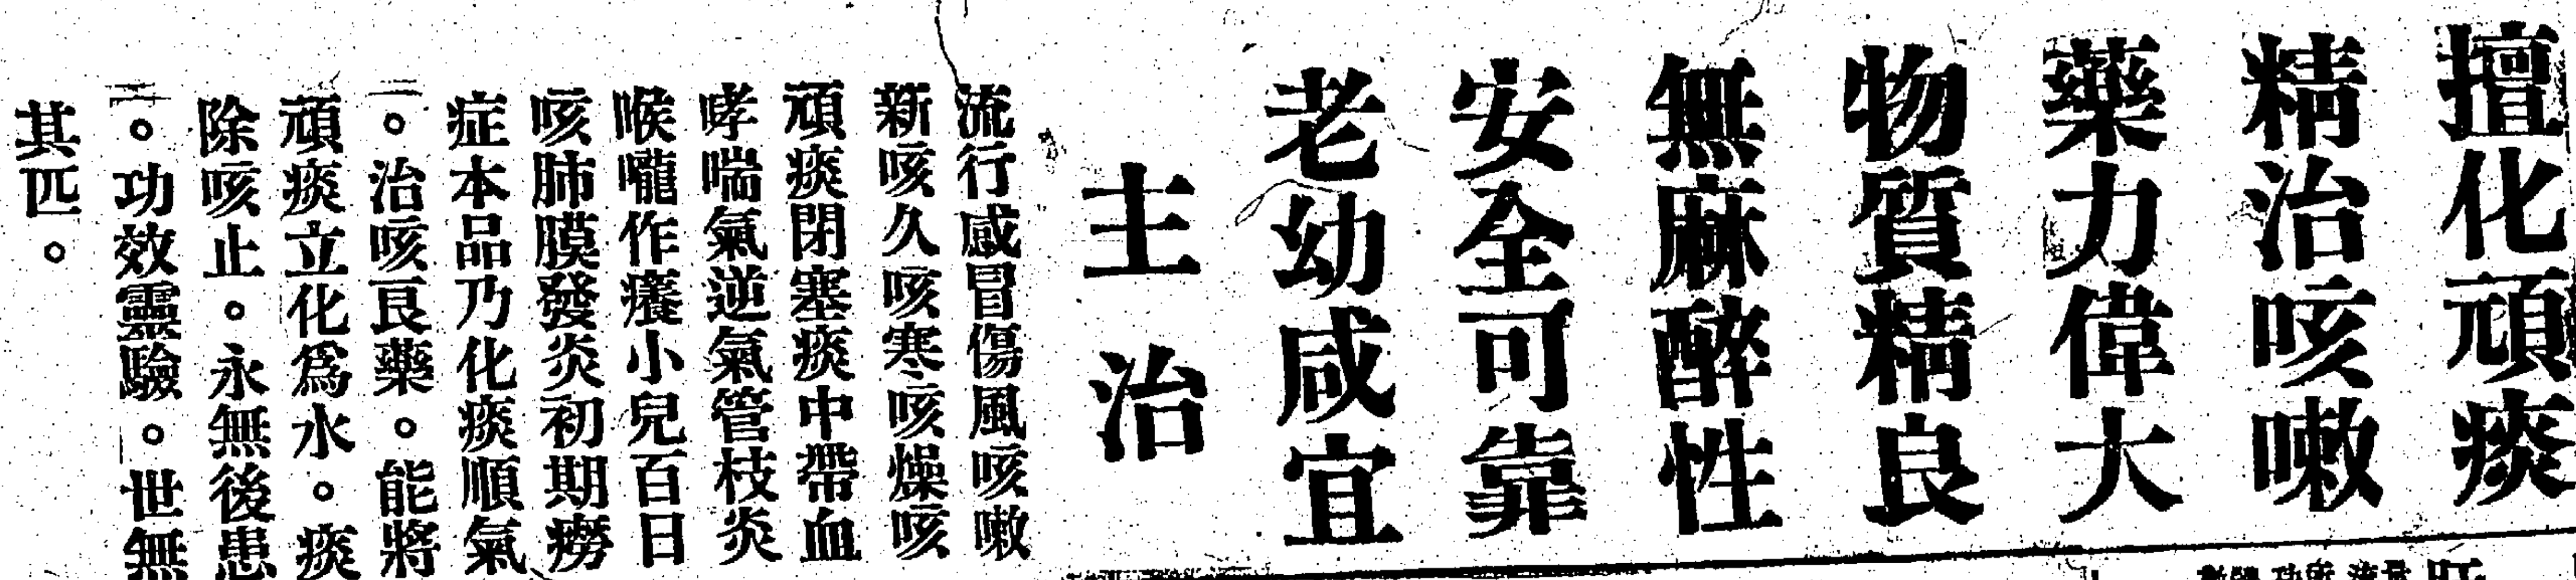 擅化頑痰
精治咳嗽
藥力偉大
物質精良
無麻醉性
安全可靠
老幼咸宜
主治
流行感冒傷風咳嗽
新咳久咳寒咳燥咳
頑痰閉塞痰中帶血
哮喘氣逆氣管枝炎
喉嚨作癢小兒百日
咳肺膜發炎初期癆
症本品乃化痰順氣
。治咳良藥。能將
頑痰立化為水。痰
除咳止。永無後患
。功效靈驗。世無
其匹。